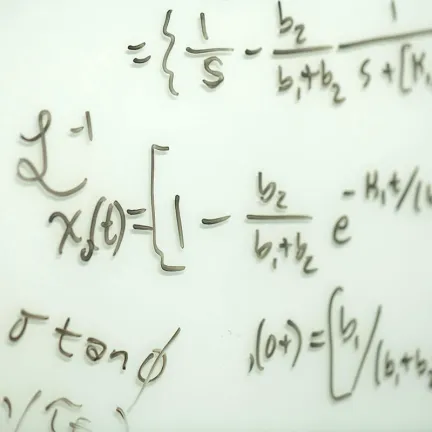 = { 1/S - b₂/(b₁+b₂) 1/S+[K₁
ℒ⁻¹
x₀(t) = [1 - b₂/(b₁+b₂) e^-K₁t/(
σ tan ϕ
,(0+) = [b₁/(b₁+b₂